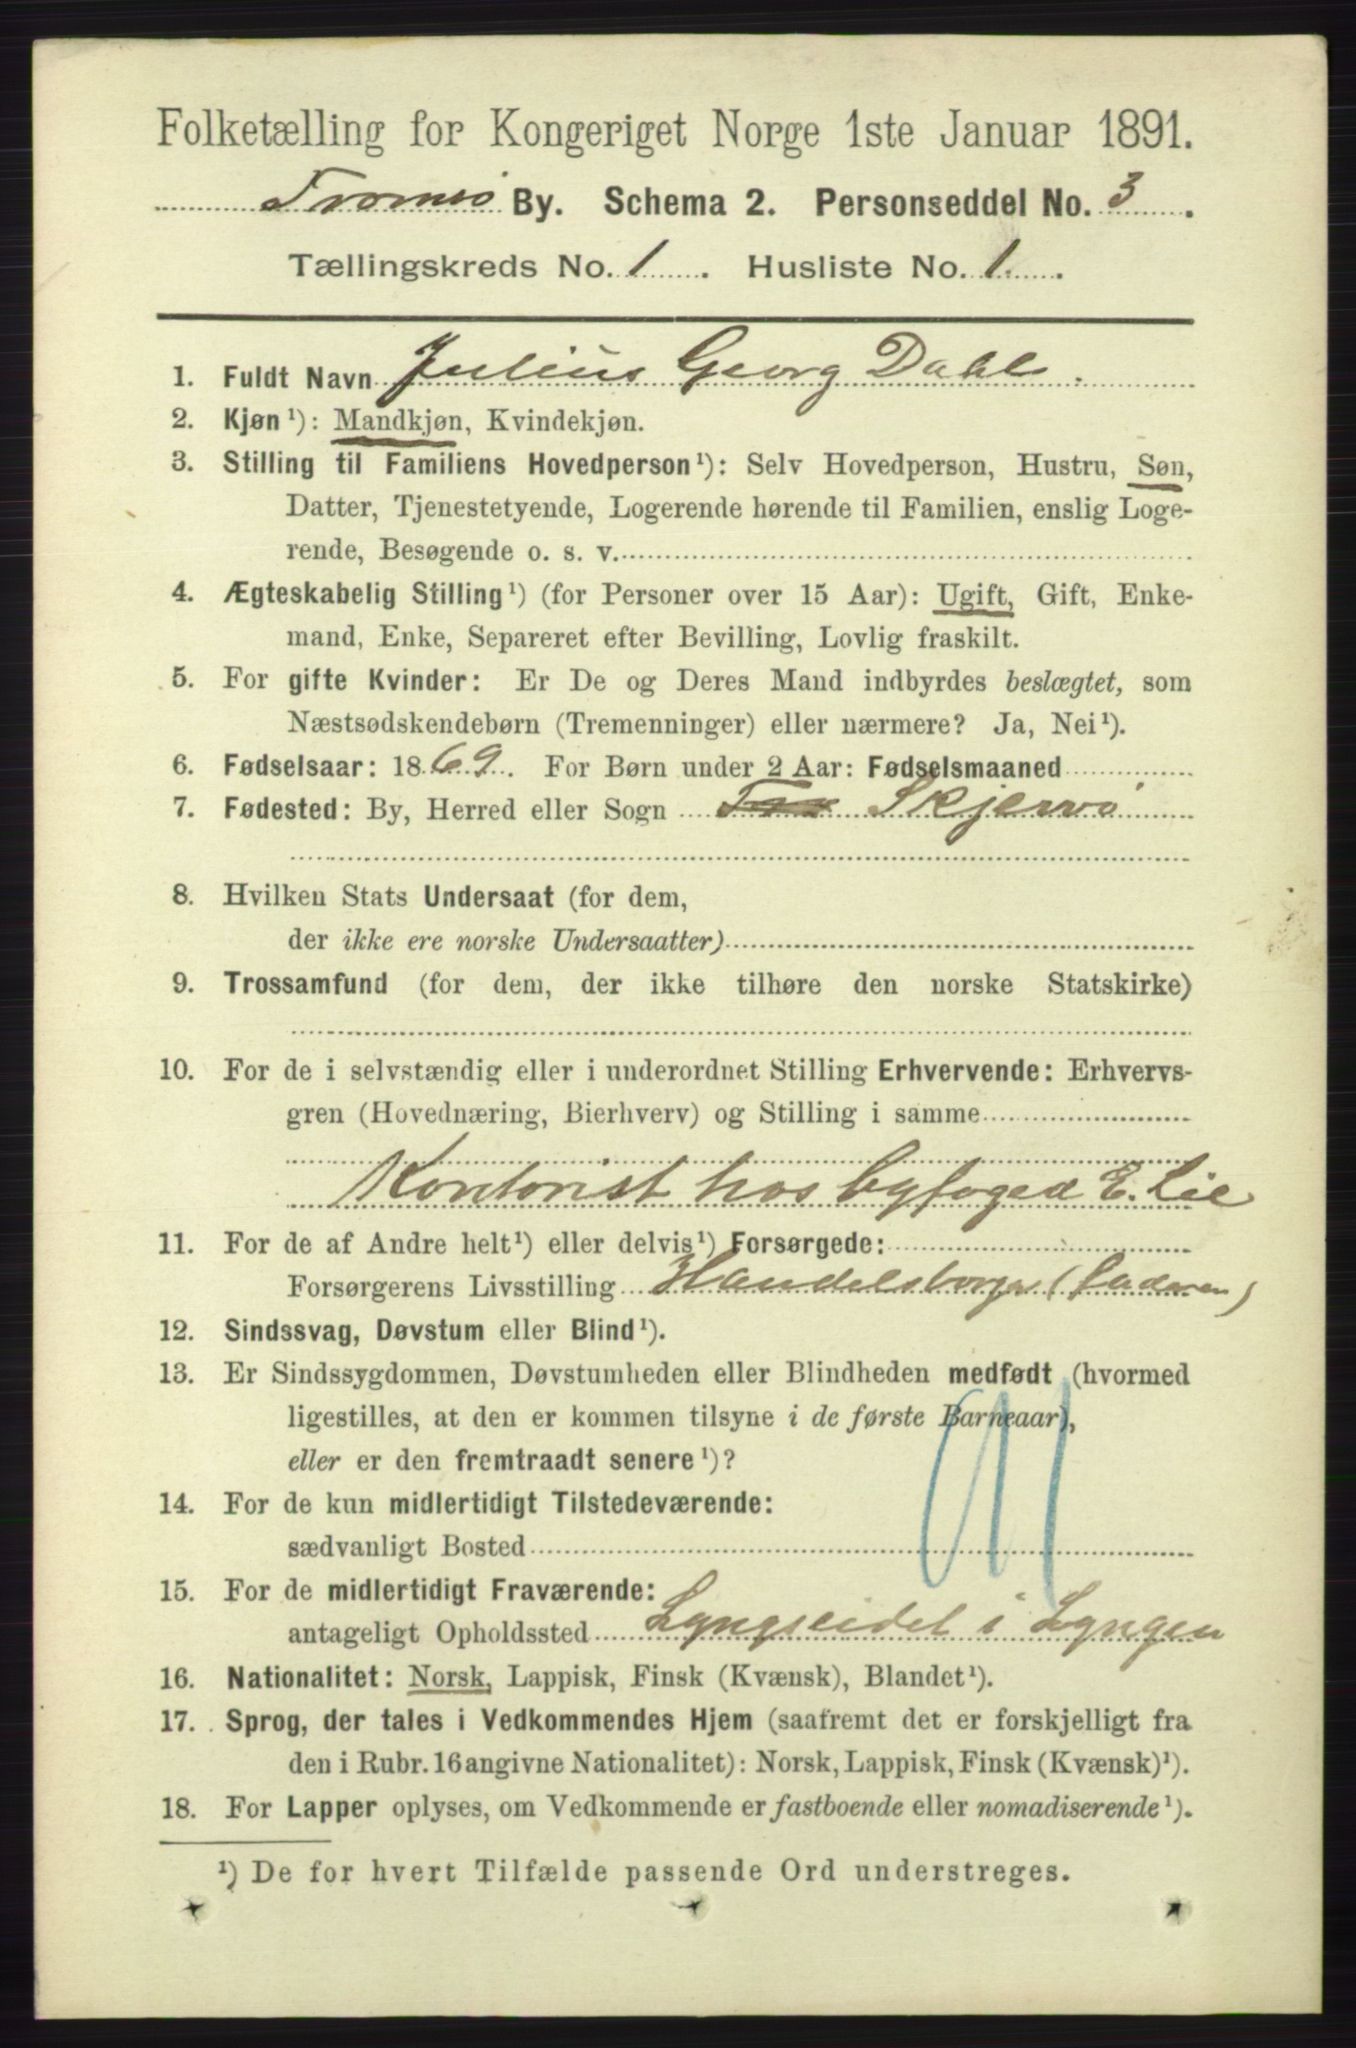 Folketælling for Kongeriget Norge 1ste Januar 1891.
Tromsø By. Schema 2. Personseddel No. 3.
Tællingskreds No. 1. Husliste No. 1.
1. Fuldt Navn Julius Georg Dahl.
2. Kjøn¹): Mandkjøn, Kvindekjøn.
3. Stilling til Familiens Hovedperson¹): Selv Hovedperson, Hustru, Søn,
Datter, Tjenestetyende, Logerende hørende til Familien, enslig Loge-
rende, Besøgende o. s. v.
4. Ægteskabelig Stilling¹) (for Personer over 15 Aar): Ugift, Gift, Enke-
mand, Enke, Separeret efter Bevilling, Lovlig fraskilt.
5. For gifte Kvinder: Er De og Deres Mand indbyrdes beslægtet, som
Næstsødskendebørn (Tremenninger) eller nærmere? Ja, Nei¹).
6. Fødselsaar: 1869. For Børn under 2 Aar: Fødselsmaaned
7. Fødested: By, Herred eller Sogn Skjervø
8. Hvilken Stats Undersaat (for dem,
der ikke ere norske Undersaatter)
9. Trossamfund (for dem, der ikke tilhøre den norske Statskirke)
10. For de i selvstændig eller i underordnet Stilling Erhvervende: Erhvervs-
gren (Hovednæring, Bierhverv) og Stilling i samme
Kontorist hos byfoged E. Lie
11. For de af Andre helt¹) eller delvis¹) Forsørgede:
Forsørgerens Livsstilling Handelsborger (Faderen)
12. Sindssvag, Døvstum eller Blind¹).
13. Er Sindssygdommen, Døvstumheden eller Blindheden medfødt (hvormed
ligestilles, at den er kommen tilsyne i de første Barneaar),
eller er den fremtraadt senere¹)?
14. For de kun midlertidigt Tilstedeværende:
sædvanligt Bosted
15. For de midlertidigt Fraværende:
antageligt Opholdssted Lyngseidet i Lyngen
16. Nationalitet: Norsk, Lappisk, Finsk (Kvænsk), Blandet¹).
17. Sprog, der tales i Vedkommendes Hjem (saafremt det er forskjelligt fra
den i Rubr. 16 angivne Nationalitet): Norsk, Lappisk, Finsk (Kvænsk)¹).
18. For Lapper oplyses, om Vedkommende er fastboende eller nomadiserende¹).
¹) De for hvert Tilfælde passende Ord understreges.